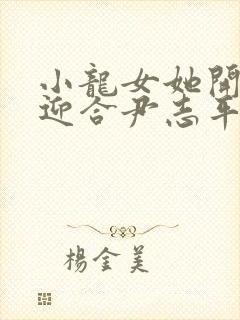 小龍女她開
迎合尹志平
楊金美